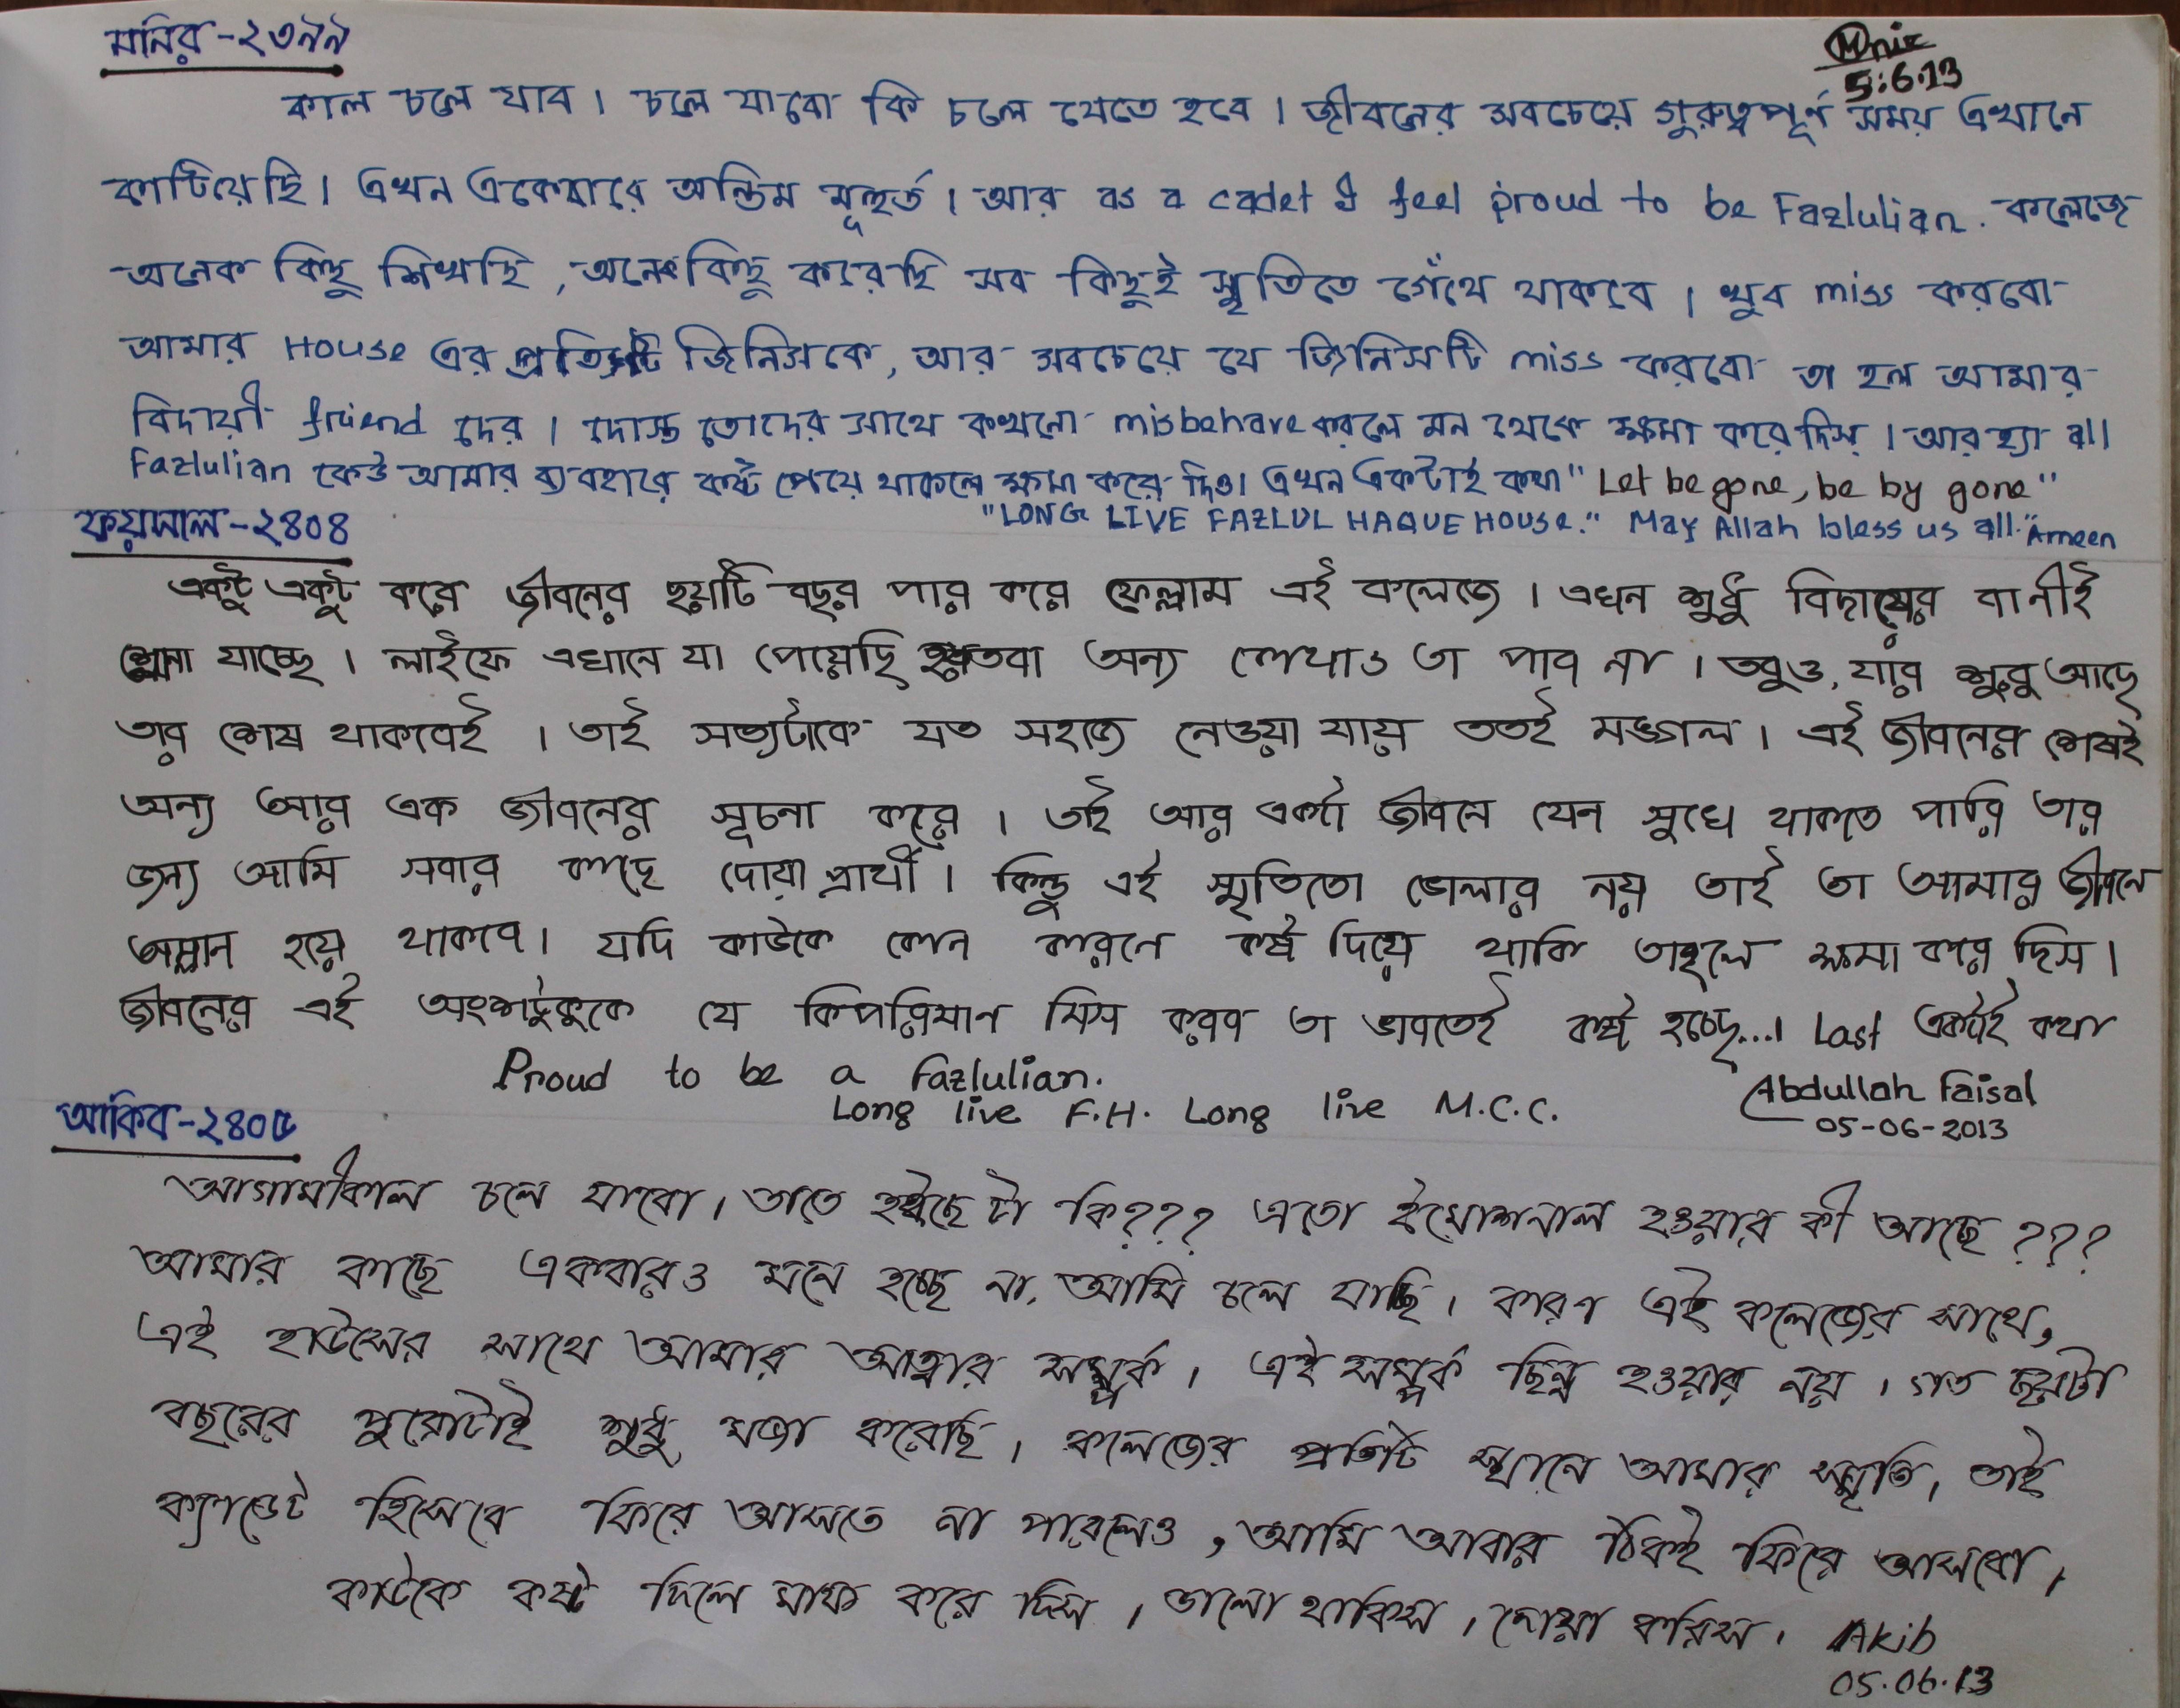 মনির-২৩৯৯
Mnir
5:6.13
কাল চলে যাব। চলে যাবো কি চলে যেতে হবে। জীবনের সবচেয়ে গুরুত্বপূর্ণ সময় এখানে
কাটিয়েছি। এখন একেবারে অন্তিম মূহুর্ত। আর as a cadet I feel proud to be Fazlulian. কলেজে
অনেক কিছু শিখছি, অনেক কিছু করেছি সব কিছুই স্মৃতিতে গেঁথে থাকবে। খুব miss করবো
আমার House এর প্রতিটি জিনিসকে, আর সবচেয়ে যে জিনিসটি miss করবো তা হল আমার
বিদায়ী friend দের। দোস্ত তোদের সাথে কখনো misbehave করলে মন থেকে ক্ষমা করে দিস। আর হ্যা all
Fazlulian কেউ আমার ব্যবহারে কষ্ট পেয়ে থাকলে ক্ষমা করে দিও। এখন একটাই কথা "Let be gone, be by gone"
"LONG LIVE FAZLUL HAQUE HOUSE." May Allah bless us all." Ameen
ফয়সাল-২৪০৪
একটু একটু করে জীবনের ছয়টি বছর পার করে ফেল্লাম এই কলেজে। এখন শুধু বিদায়ের বানীই
শোনা যাচ্ছে। লাইফে এখানে যা পেয়েছি হয়তবা অন্য কোথাও তা পাব না। তবুও, যার শুরু আছে
তার শেষ থাকবেই। তাই সত্যটাকে যত সহজে নেওয়া যায় ততই মঙ্গল। এই জীবনের শেষই
অন্য আর এক জীবনের সূচনা করে। তাই আর একটা জীবনে যেন সুখে থাকতে পারি তার
জন্য আমি সবার কাছে দোয়া প্রার্থী। কিন্তু এই স্মৃতিতো ভোলার নয় তাই তা আমার জীবনে
অম্লান হয়ে থাকবে। যদি কাউকে কোন কারনে কষ্ট দিয়ে থাকি তাহলে ক্ষমা করে দিস।
জীবনের এই অংশটুকুকে যে কিপরিমান মিস করব তা ভাবতেই কষ্ট হচ্ছে...। Last একটাই কথা
Proud to be a Fazlulian.
Long live F.H. Long live M.C.C.
Abdullah Faisal
05-06-2013
আকিব-২৪০৫
আগামীকাল চলে যাবো। তাতে হইছেটা কি??? এতো ইমোশনাল হওয়ার কী আছে???
আমার কাছে একবারও মনে হচ্ছে না, আমি চলে যাচ্ছি। কারণ এই কলেজের সাথে,
এই হাউসের সাথে আমার আত্নার সম্পর্ক। এই সম্পর্ক ছিন্ন হওয়ার নয়। গত ছয়টা
বছরের পুরোটাই শুধু মজা করেছি। কলেজের প্রতিটি স্থানে আমার স্মৃতি, তাই
ক্যাডেট হিসেবে ফিরে আসতে না পারলেও, আমি আবার ঠিকই ফিরে আসবো।
কাউকে কষ্ট দিলে মাফ করে দিস। ভালো থাকিস। দোয়া করিস। Akib
05.06.13